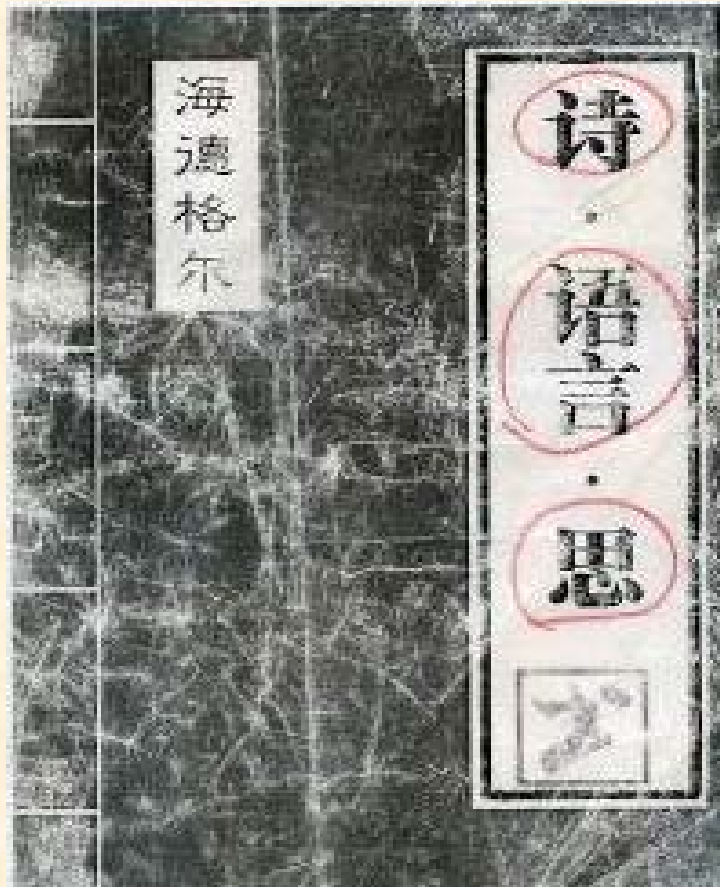 诗·语言·思
海德格尔